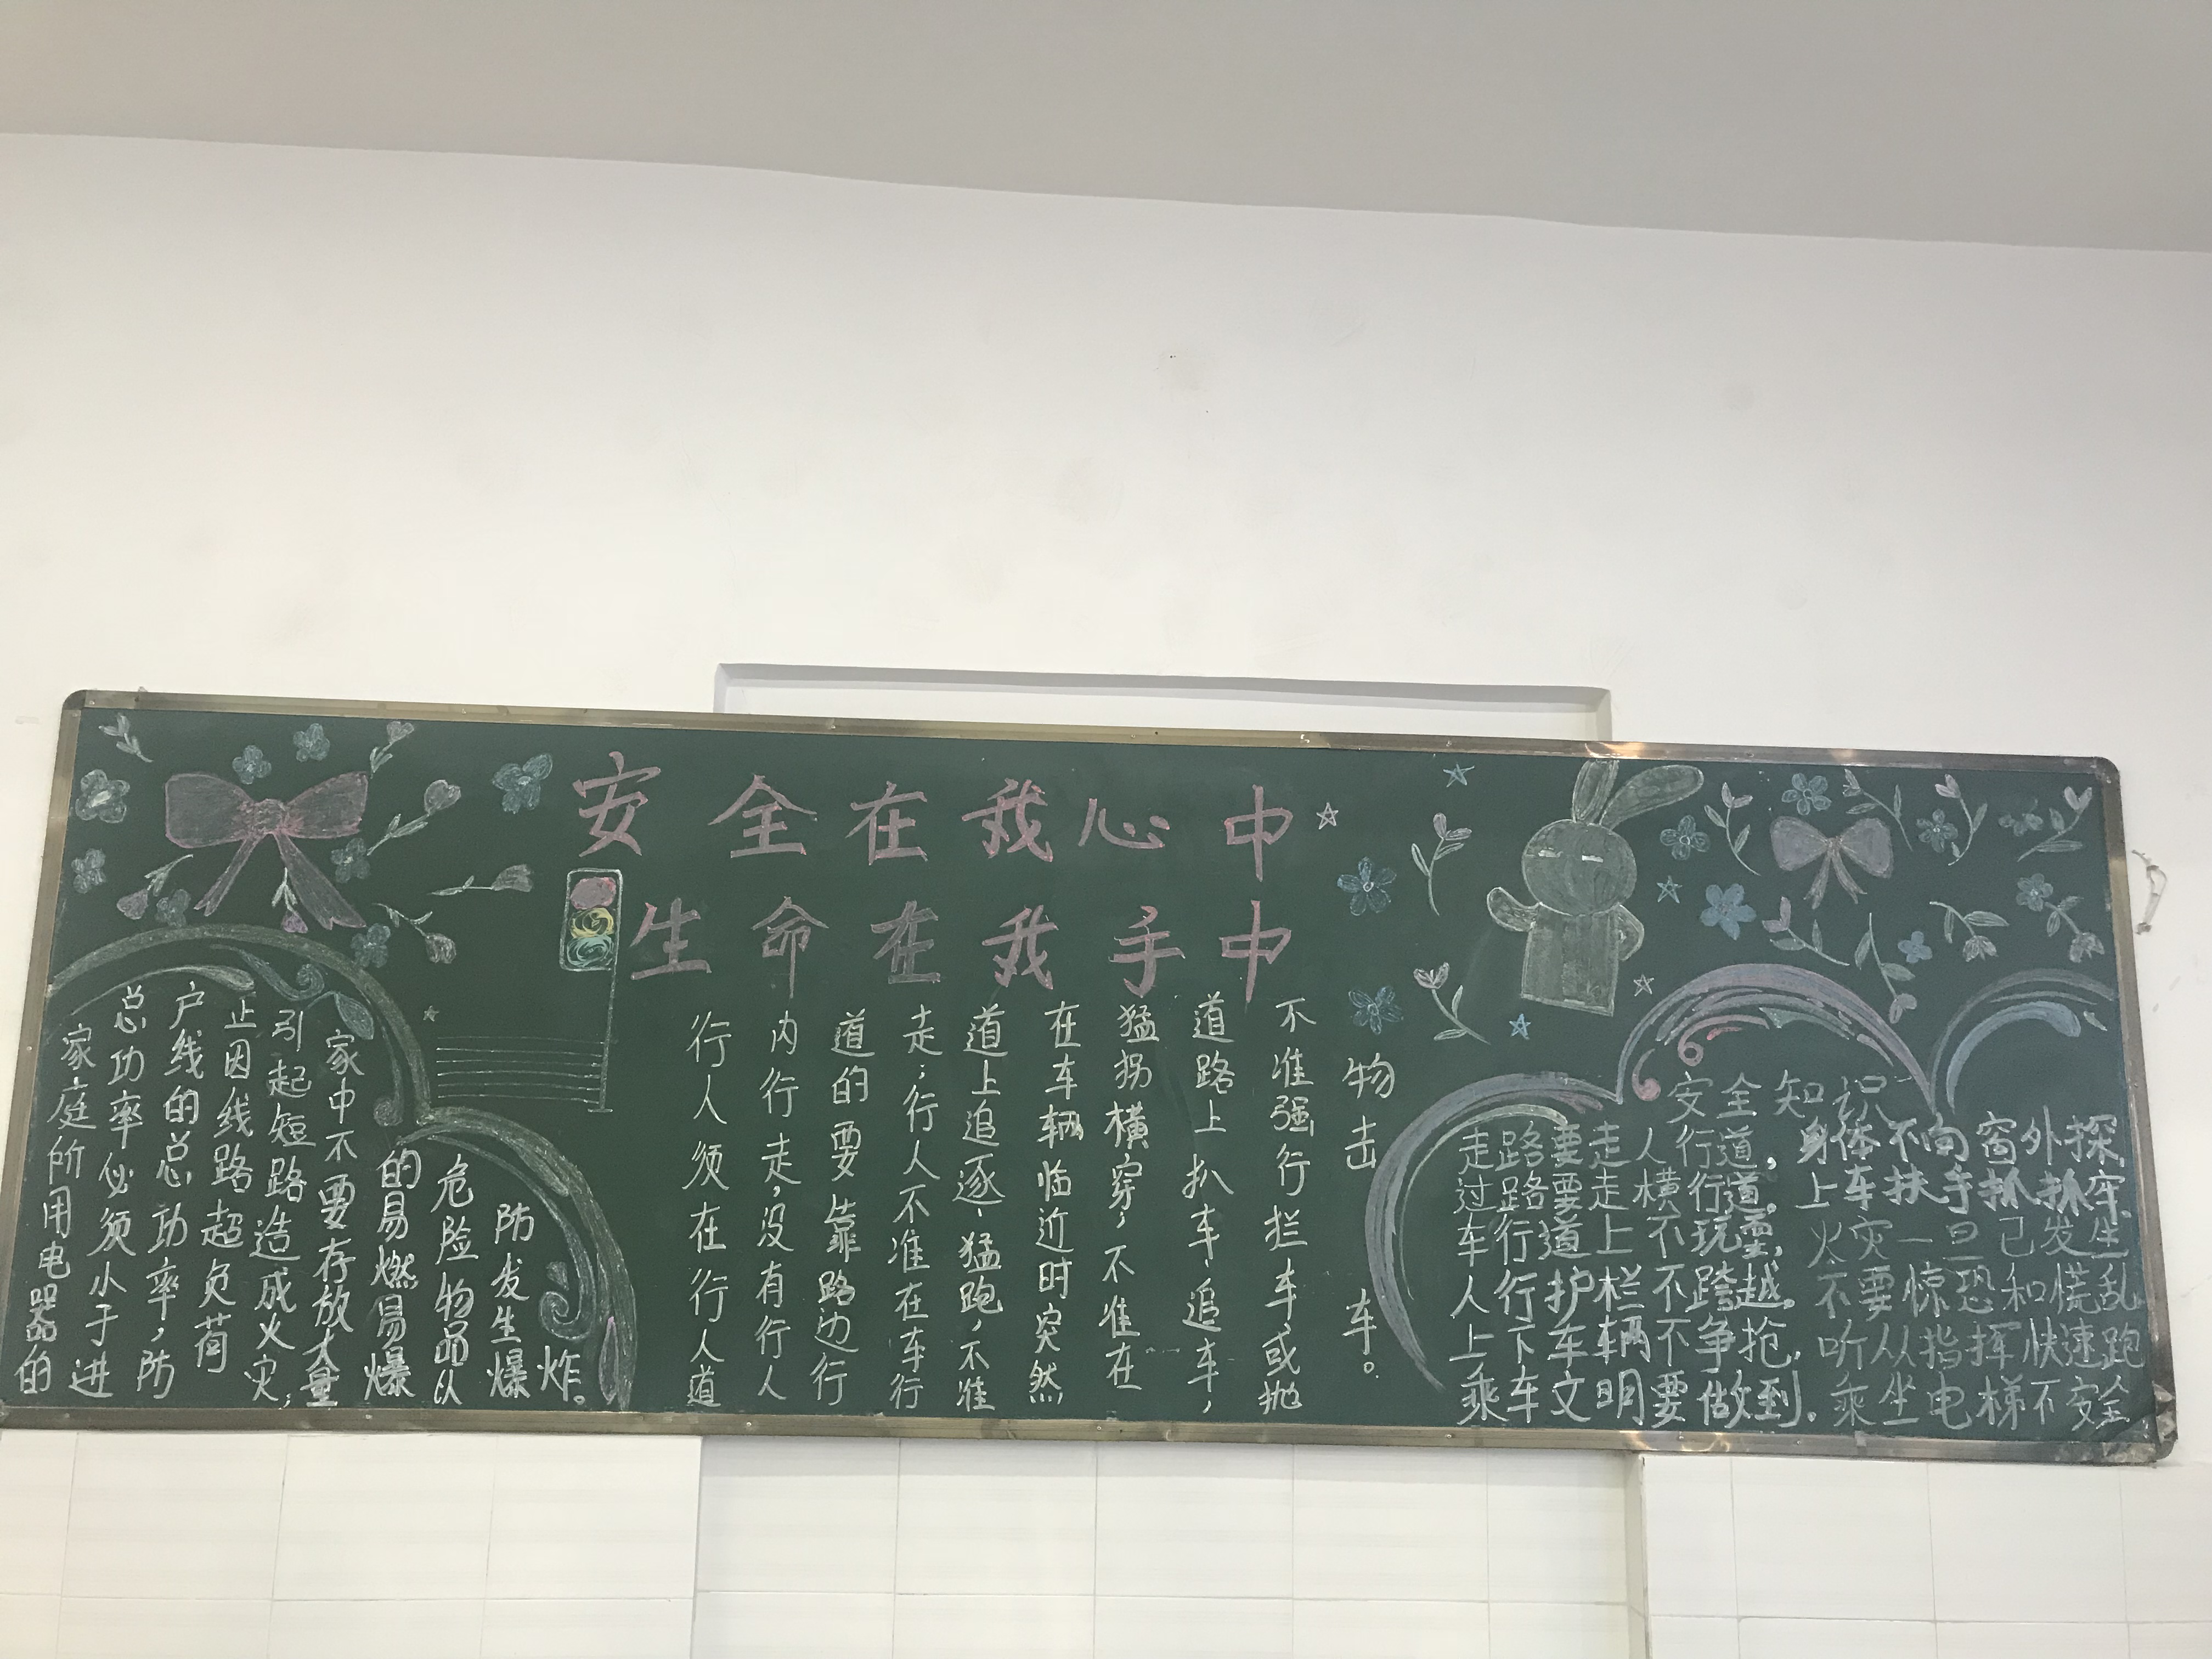 安全在我心中
生命在我手中
家庭所用电器的
总功率必须小于进
户线的总功率，防
止因线路超负荷
引起短路造成火灾；
家中不要存放大量
的易燃易爆
危险物品以
防发生爆
炸。
行人须在行人道
内行走，没有行人
道的要靠路边行
走；行人不准在车行
道上追逐、猛跑，不准
在车辆临近时突然
猛拐横穿，不准在
道路上扒车、追车，
不准强行拦车或抛
物击车。
安全知识
走路要走人行道，
过路要走横行道。
车行道上不玩耍，
人行护栏不跨越。
上下车辆不争抢，
乘车文明要做到.
身体不向窗外探
上车扶手抓抓牢.
火灾一旦已发生
不要惊恐和慌乱
听从指挥快速跑
乘坐电梯不安全